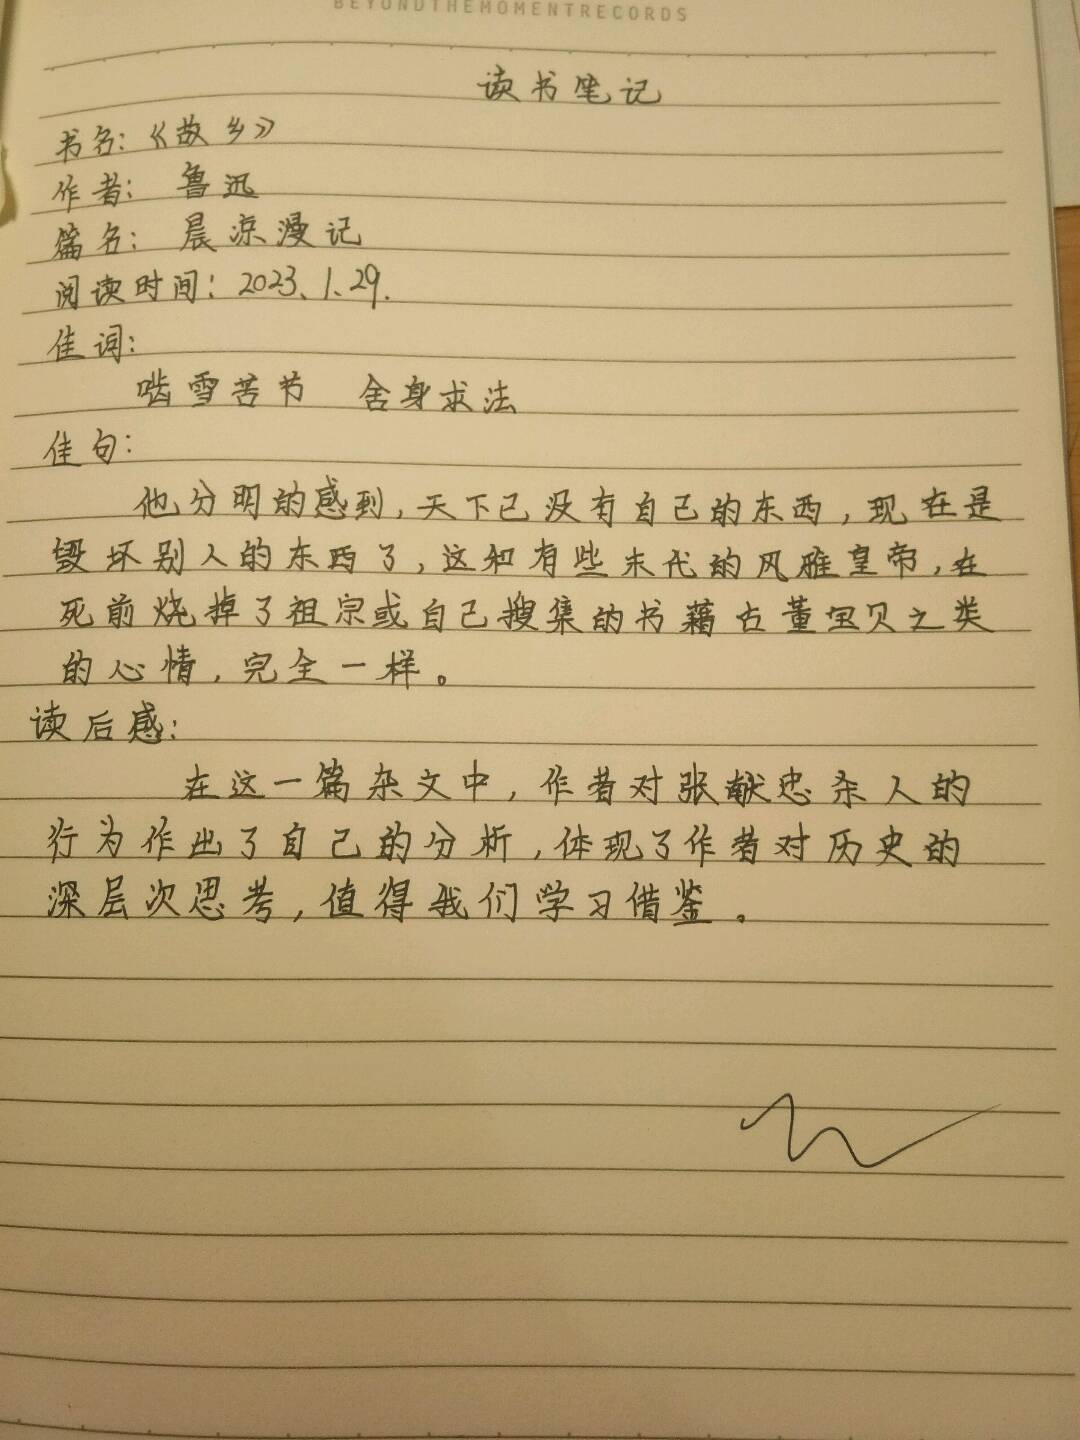 BEYONDTHEMOMENTRECORDS
读书笔记
书名：《故乡》
作者： 鲁迅
篇名： 晨凉漫记
阅读时间：2023、1、29.
佳词：
啮雪苦节 舍身求法
佳句：
他分明的感到，天下已没有自己的东西，现在是
毁坏别人的东西了，这和有些末代的风雅皇帝，在
死前烧掉了祖宗或自己搜集的书籍古董宝贝之类
的心情，完全一样。
读后感：
在这一篇杂文中，作者对张献忠杀人的
行为作出了自己的分析，体现了作者对历史的
深层次思考，值得我们学习借鉴。